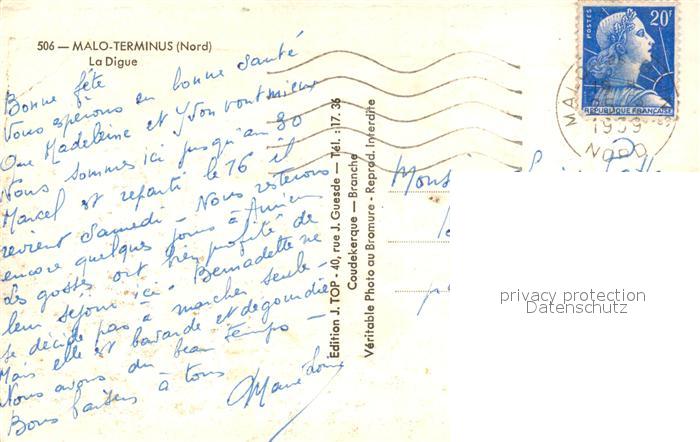 506 — MALO-TERMINUS (Nord)
La Digue
Bonne fête
Vous espérons en bonne santé
Que Madeleine et Yvon vont mieux
Nous sommes ici jusqu'au 30
Marcel est reparti le 16 il
revient Samedi - Nous resterons
encore quelques jours à Amiens
les gosses ont bien profité de
leur séjour ici - Bernadette ne
se décide pas à marcher seule -
Mais elle est bavarde et dégourdie
Nous avons du beau temps -
Bons baisers à tous
Marie Louise
Edition J. TOP - 40, rue J. Guesde — Tél. : 17. 36
Coudekerque — Branche
Véritable Photo au Bromure - Reprod. Interdite
POSTES
20F
REPUBLIQUE FRANÇAISE
MALO
1959
NORD
Mons
privacy protection
Datenschutz